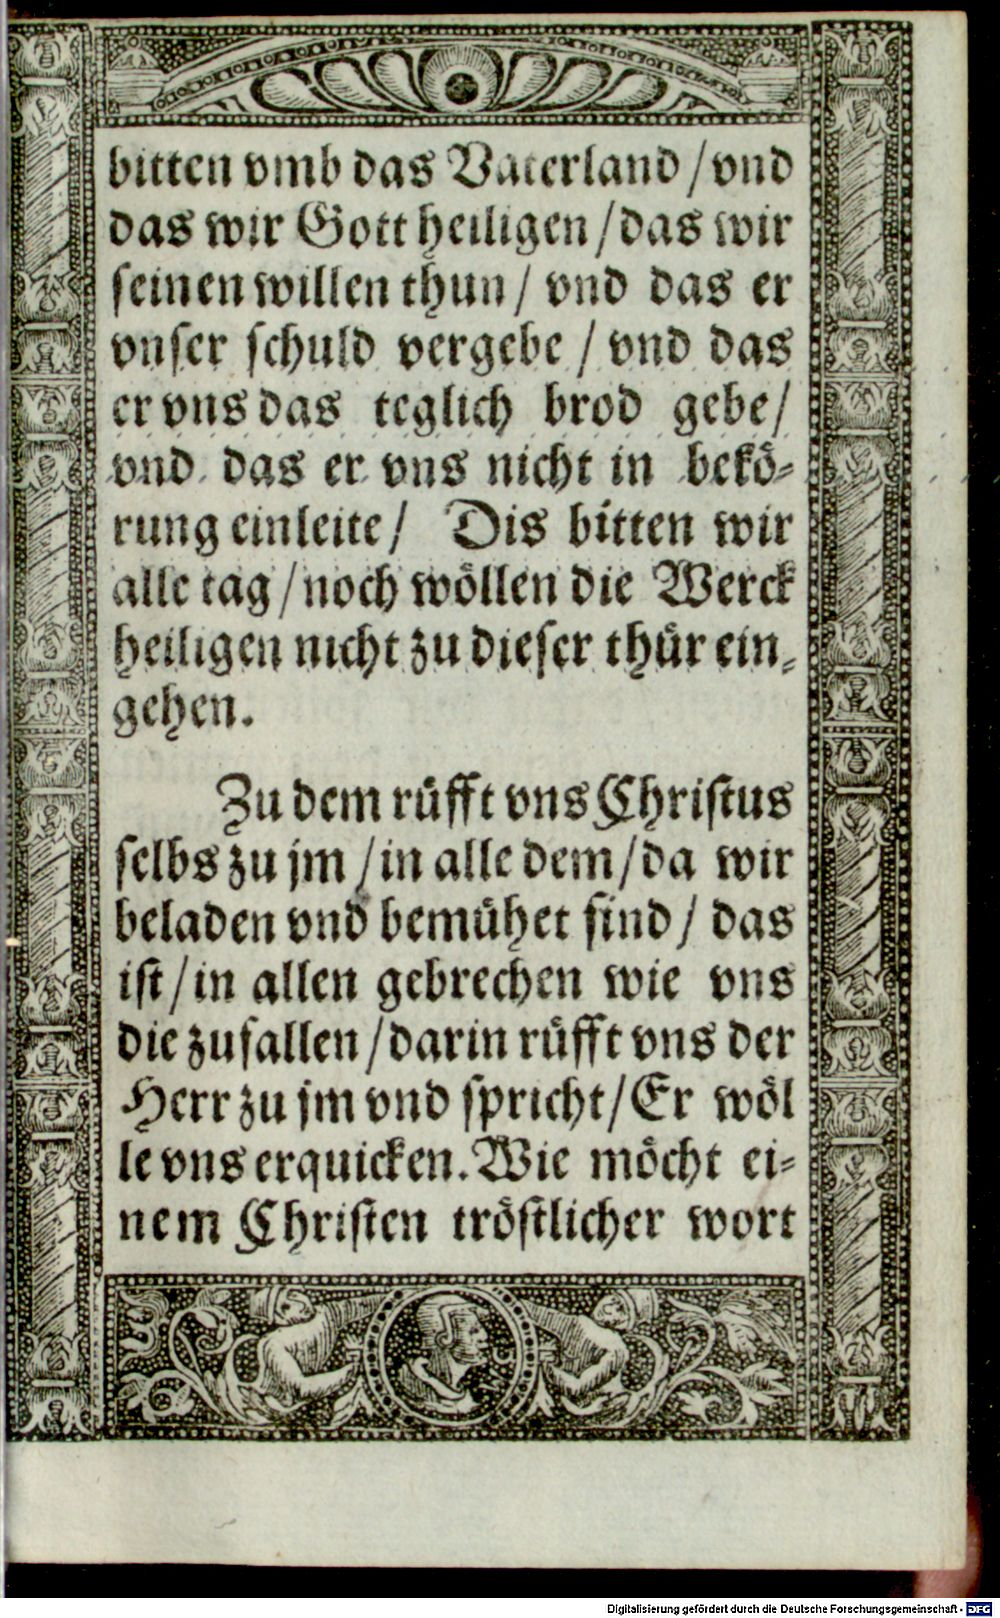 bitten vmb das Vaterland / vnd
das wir Gott heiligen / das wir
seinen willen thun / vnd das er
vnser schuld vergebe / vnd das
er vns das teglich brod gebe /
vnd das er vns nicht in bekö-
rung einleite / Dis bitten wir
alle tag / noch wöllen die Werck
heiligen nicht zu dieser thür ein-
gehen.
Zu dem rüfft vns Christus
selbs zu jm / in alle dem / da wir
beladen vnd bemühet sind / das
ist / in allen gebrechen wie vns
die zufallen / darin rüfft vns der
Herr zu jm vnd spricht / Er wöl
le vns erquicken. Wie möcht ei-
nem Christen tröstlicher wort
Digitalisierung gefördert durch die Deutsche Forschungsgemeinschaft - DFG